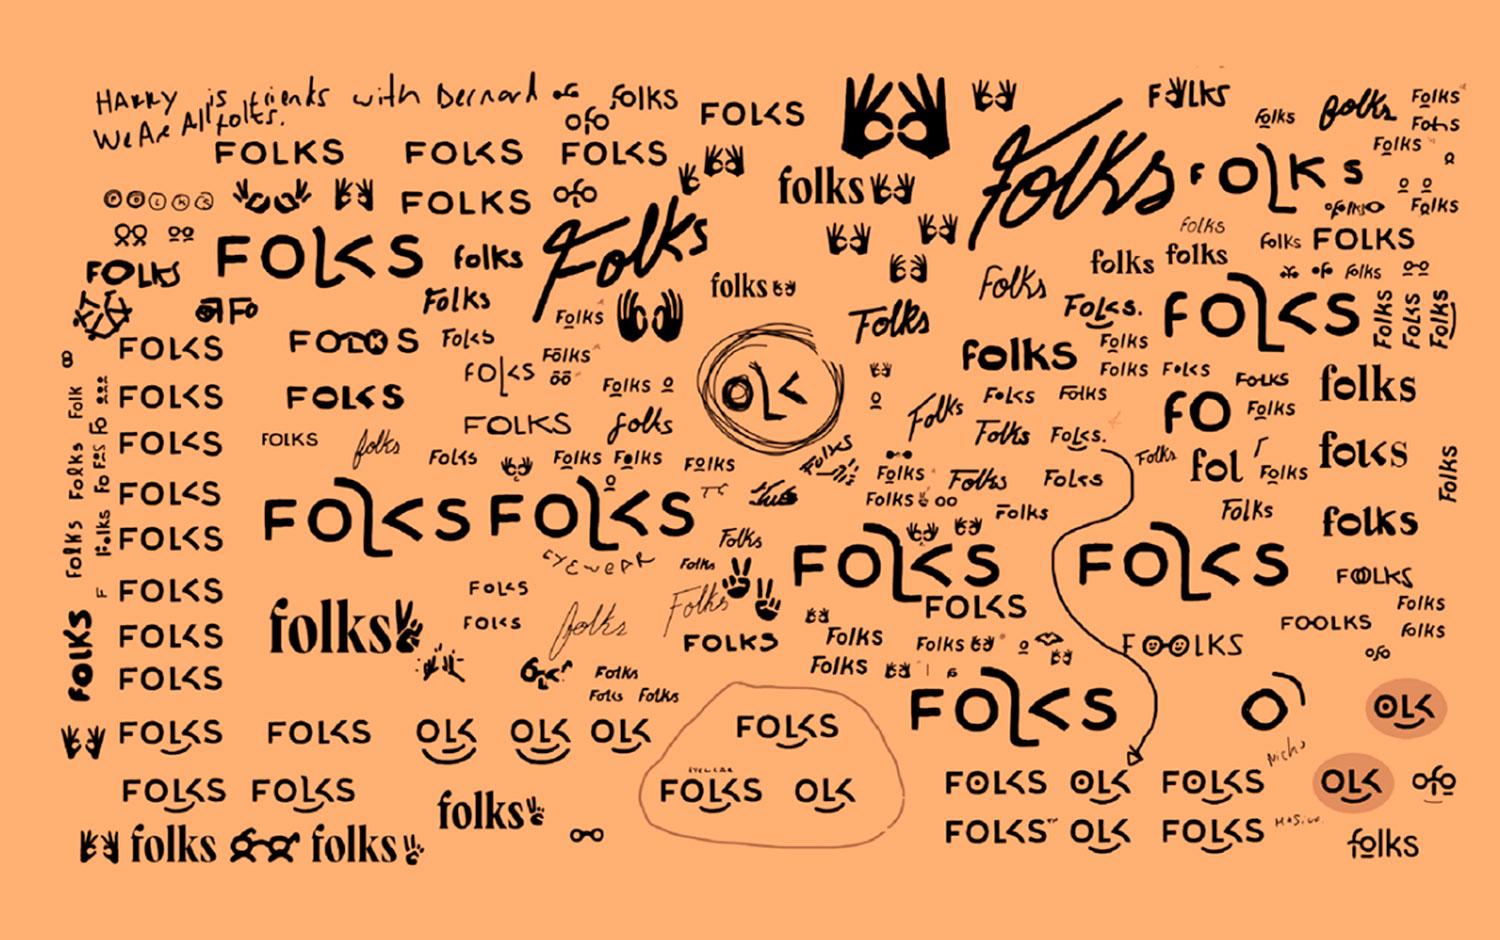 HARRY is friends with Bernard
We Are All folks.
folks
FOLKS
FOLKS
FOLKS
FOLKS
FOLKS
FOLKS
folks
Folks
FOLKS
folks
Folks
FOLKS
folks
Folks
Folks
Folks
folks
Folks
Folks
FOLKS
Folks
folks
folks
folks
FOLKS
folks
Folks
FOLKS
Folks
Folks
Folks
folks
Folks
Folks
Folks
FOLKS
FOLKS
Folks
Folks
FOLKS
Folks
OLK
Folks
Folks
folks
Folks
Folks
Folks
FOLKS
folks
FOLKS
FOLKS
Folks
Folks
Folks
FOLKS
Folks
FO
Folks
FOLKS
FOLKS
folks
FOLKS
folks
Folks
Folks
Folks
Folks
Folks
Folks
Folks
Folks
fol
Folks
folks
Folks
FOLKS
FOLKS
FOLKS
EYEWEAR
Folks
Folks
Folks
Folks
Folks
folks
FOLKS
Folks
Folks
FOLKS
FOLKS
FOLKS
FOOLKS
FOLKS
FOLKS
folks
Folks
folks
FOLKS
FOLKS
FOLKS
FOLKS
Folks
Folks
Folks
FOOLKS
FOOLKS
Folks
Folks
FOLKS
Folks
Folks
Folks
FOLKS
FOLKS
FOLKS
OLK
OLK
OLK
FOLKS
OLK
FOLKS
FOLKS
EYEWEAR
FOLKS
OLK
FOLKS
OLK
FOLKS
OLK
folks
FOLKS
OLK
FOLKS
folks
folks
folks